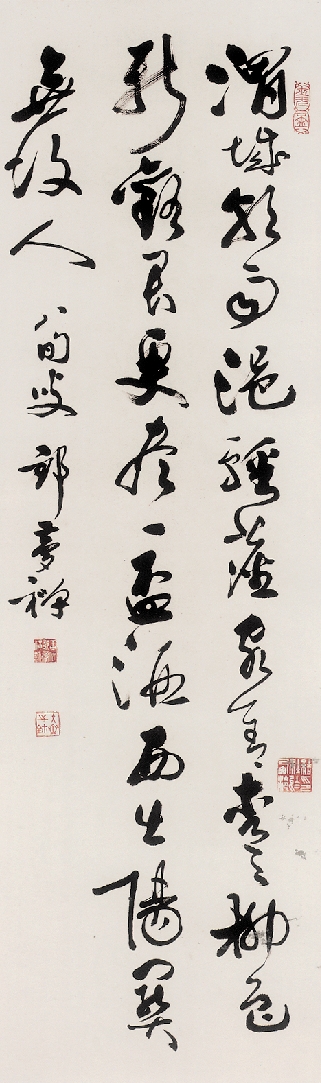 渭城朝雨浥輕塵客舍青〻柳色
新勸君更盡一盃酒西出陽關
無故人 八旬叟 鄒夢禪